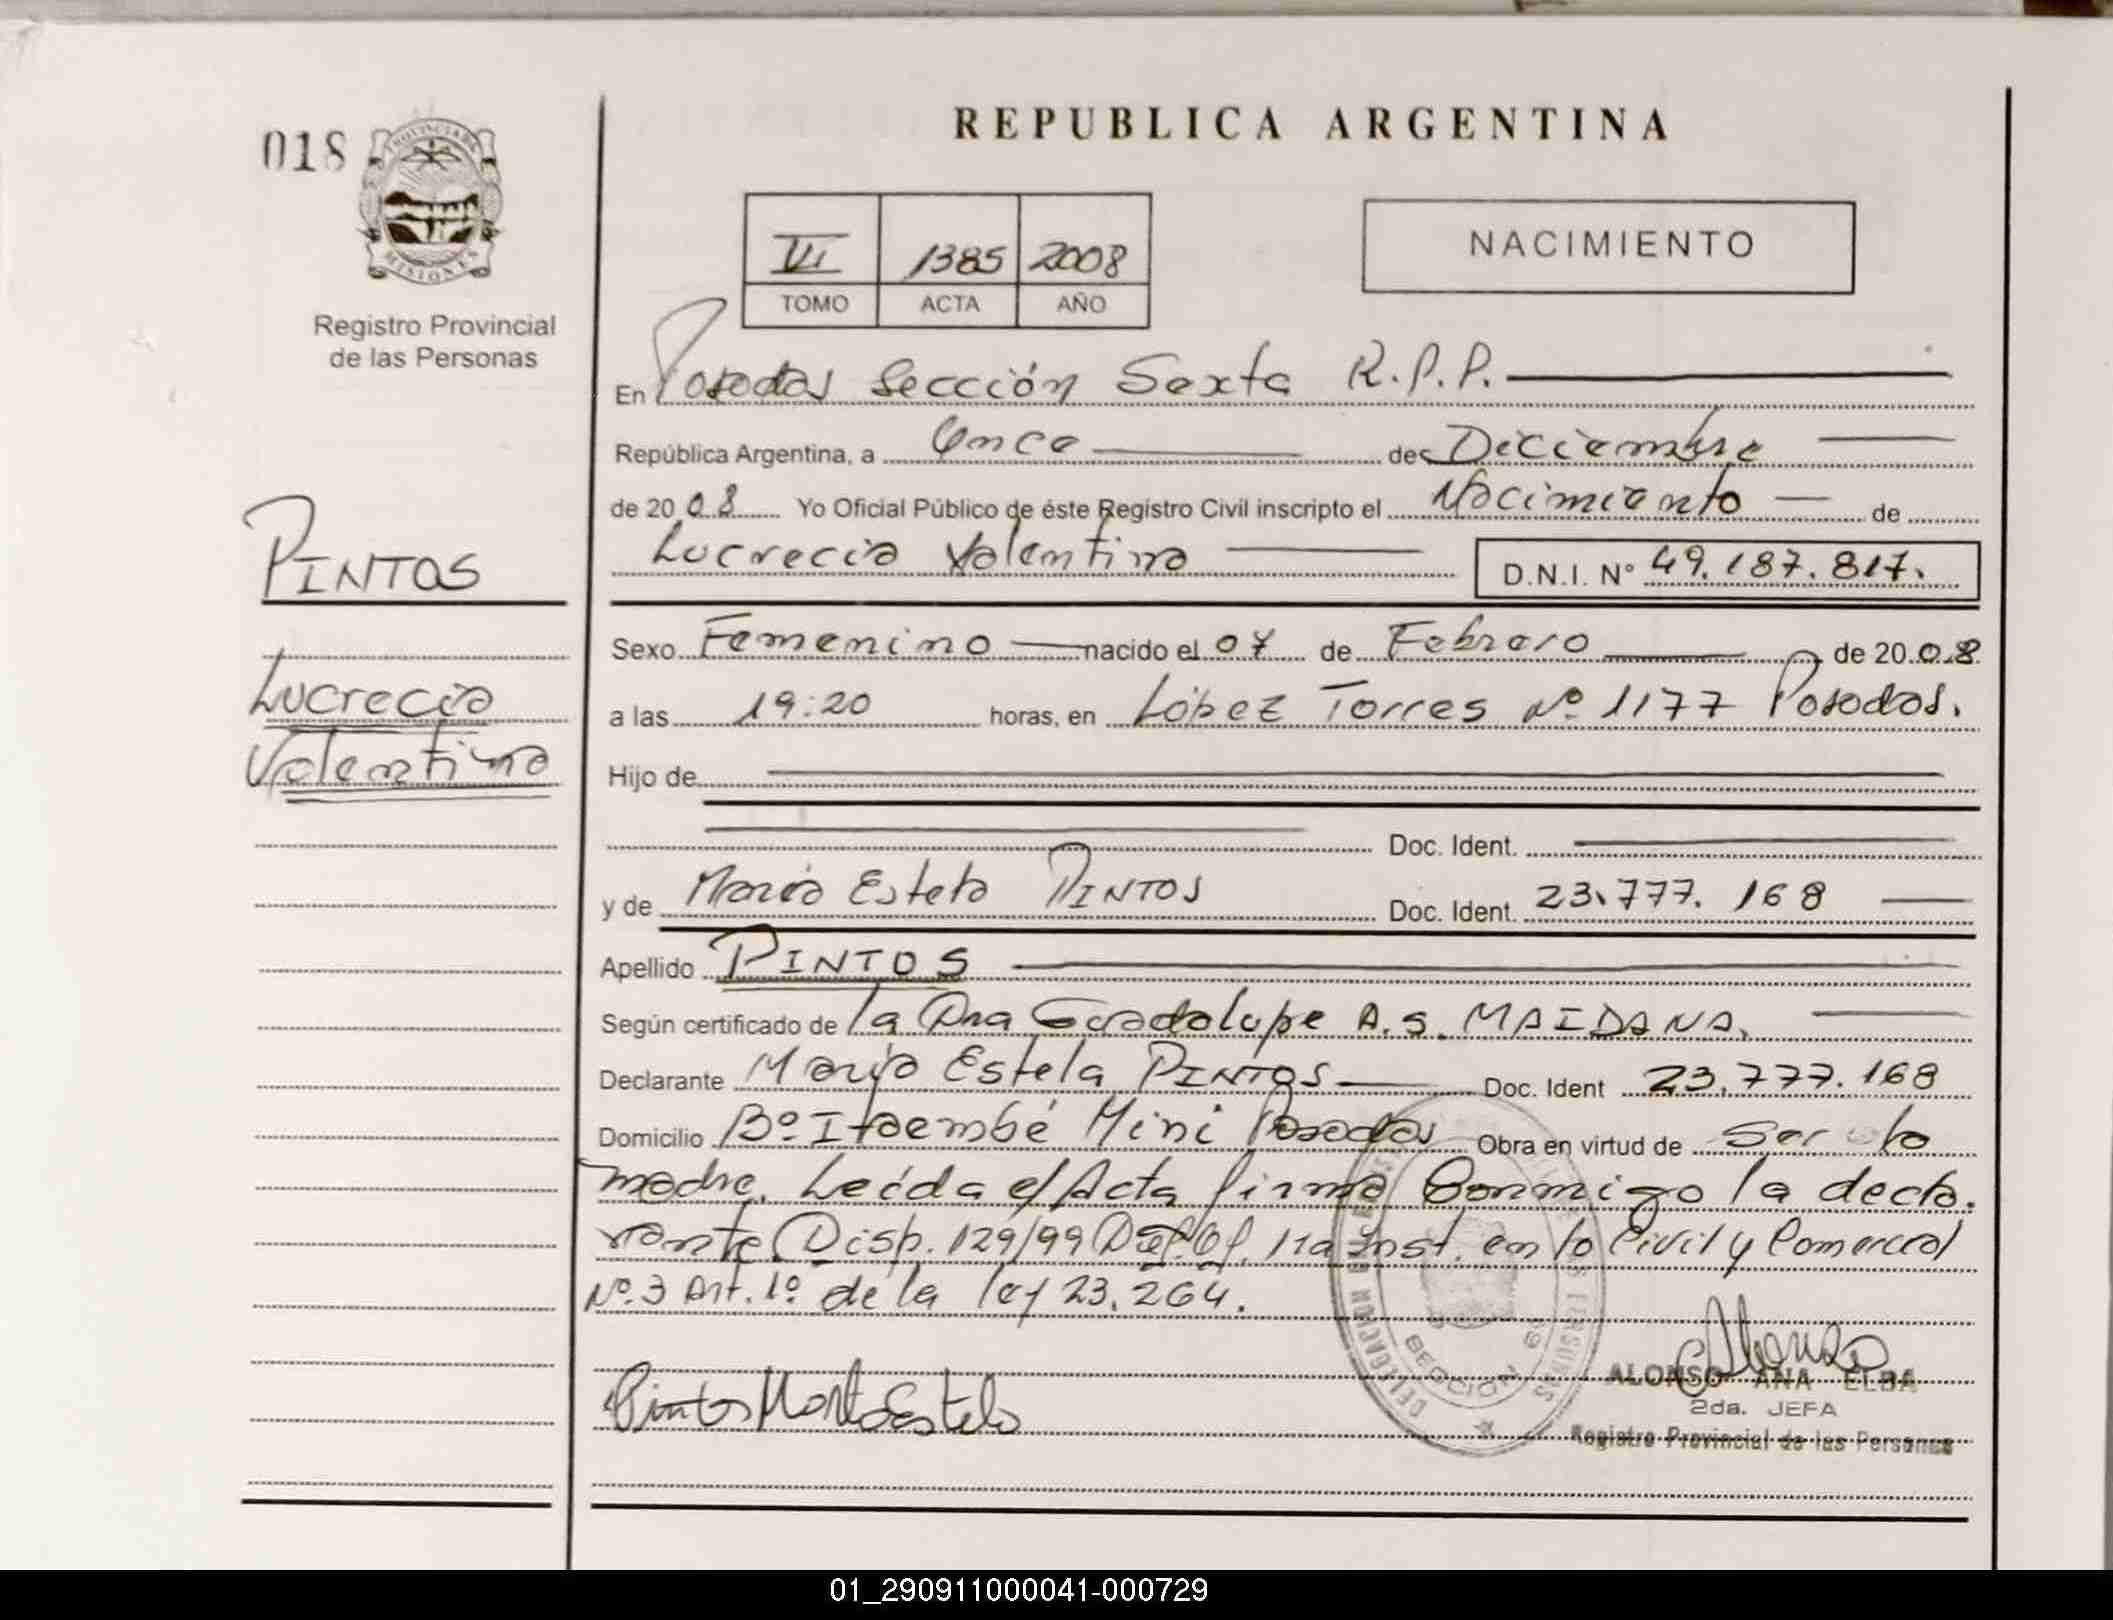 REPUBLICA ARGENTINA
018
PROVINCIA DE MISIONES
Registro Provincial
de las Personas
VI 1385 2008
TOMO ACTA AÑO
NACIMIENTO
En Posadas Sección Sexta R.P.P.
República Argentina, a Once de Diciembre
de 2008 Yo Oficial Público de éste Registro Civil inscripto el Nacimiento de
Lucrecia Valentina D.N.I. Nº 49.187.817.
PINTOS
Lucrecia
Valentina
Sexo Femenino nacido el 07 de Febrero de 2008
a las 19:20 horas, en López Torres Nº 1177 Posadas.
Hijo de
Doc. Ident.
y de María Estela PINTOS Doc. Ident. 23.777.168
Apellido PINTOS
Según certificado de la Dra Guadalupe A.S. MAIDANA.
Declarante María Estela PINTOS Doc. Ident 23.777.168
Domicilio Bº Itaembé Mini Posadas Obra en virtud de Ser la
madre. Leída el Acta firma Conmigo la decla.
rante. Disp. 129/99 Def. Of. 1ra Inst. en lo Civil y Comercial
Nº 3 Art. 1º de la ley 23.264.
Pintos María Estela
SECCION 6º
ALONSO ANA ELBA
2da. JEFA
Registro Provincial de las Personas
01_290911000041-000729